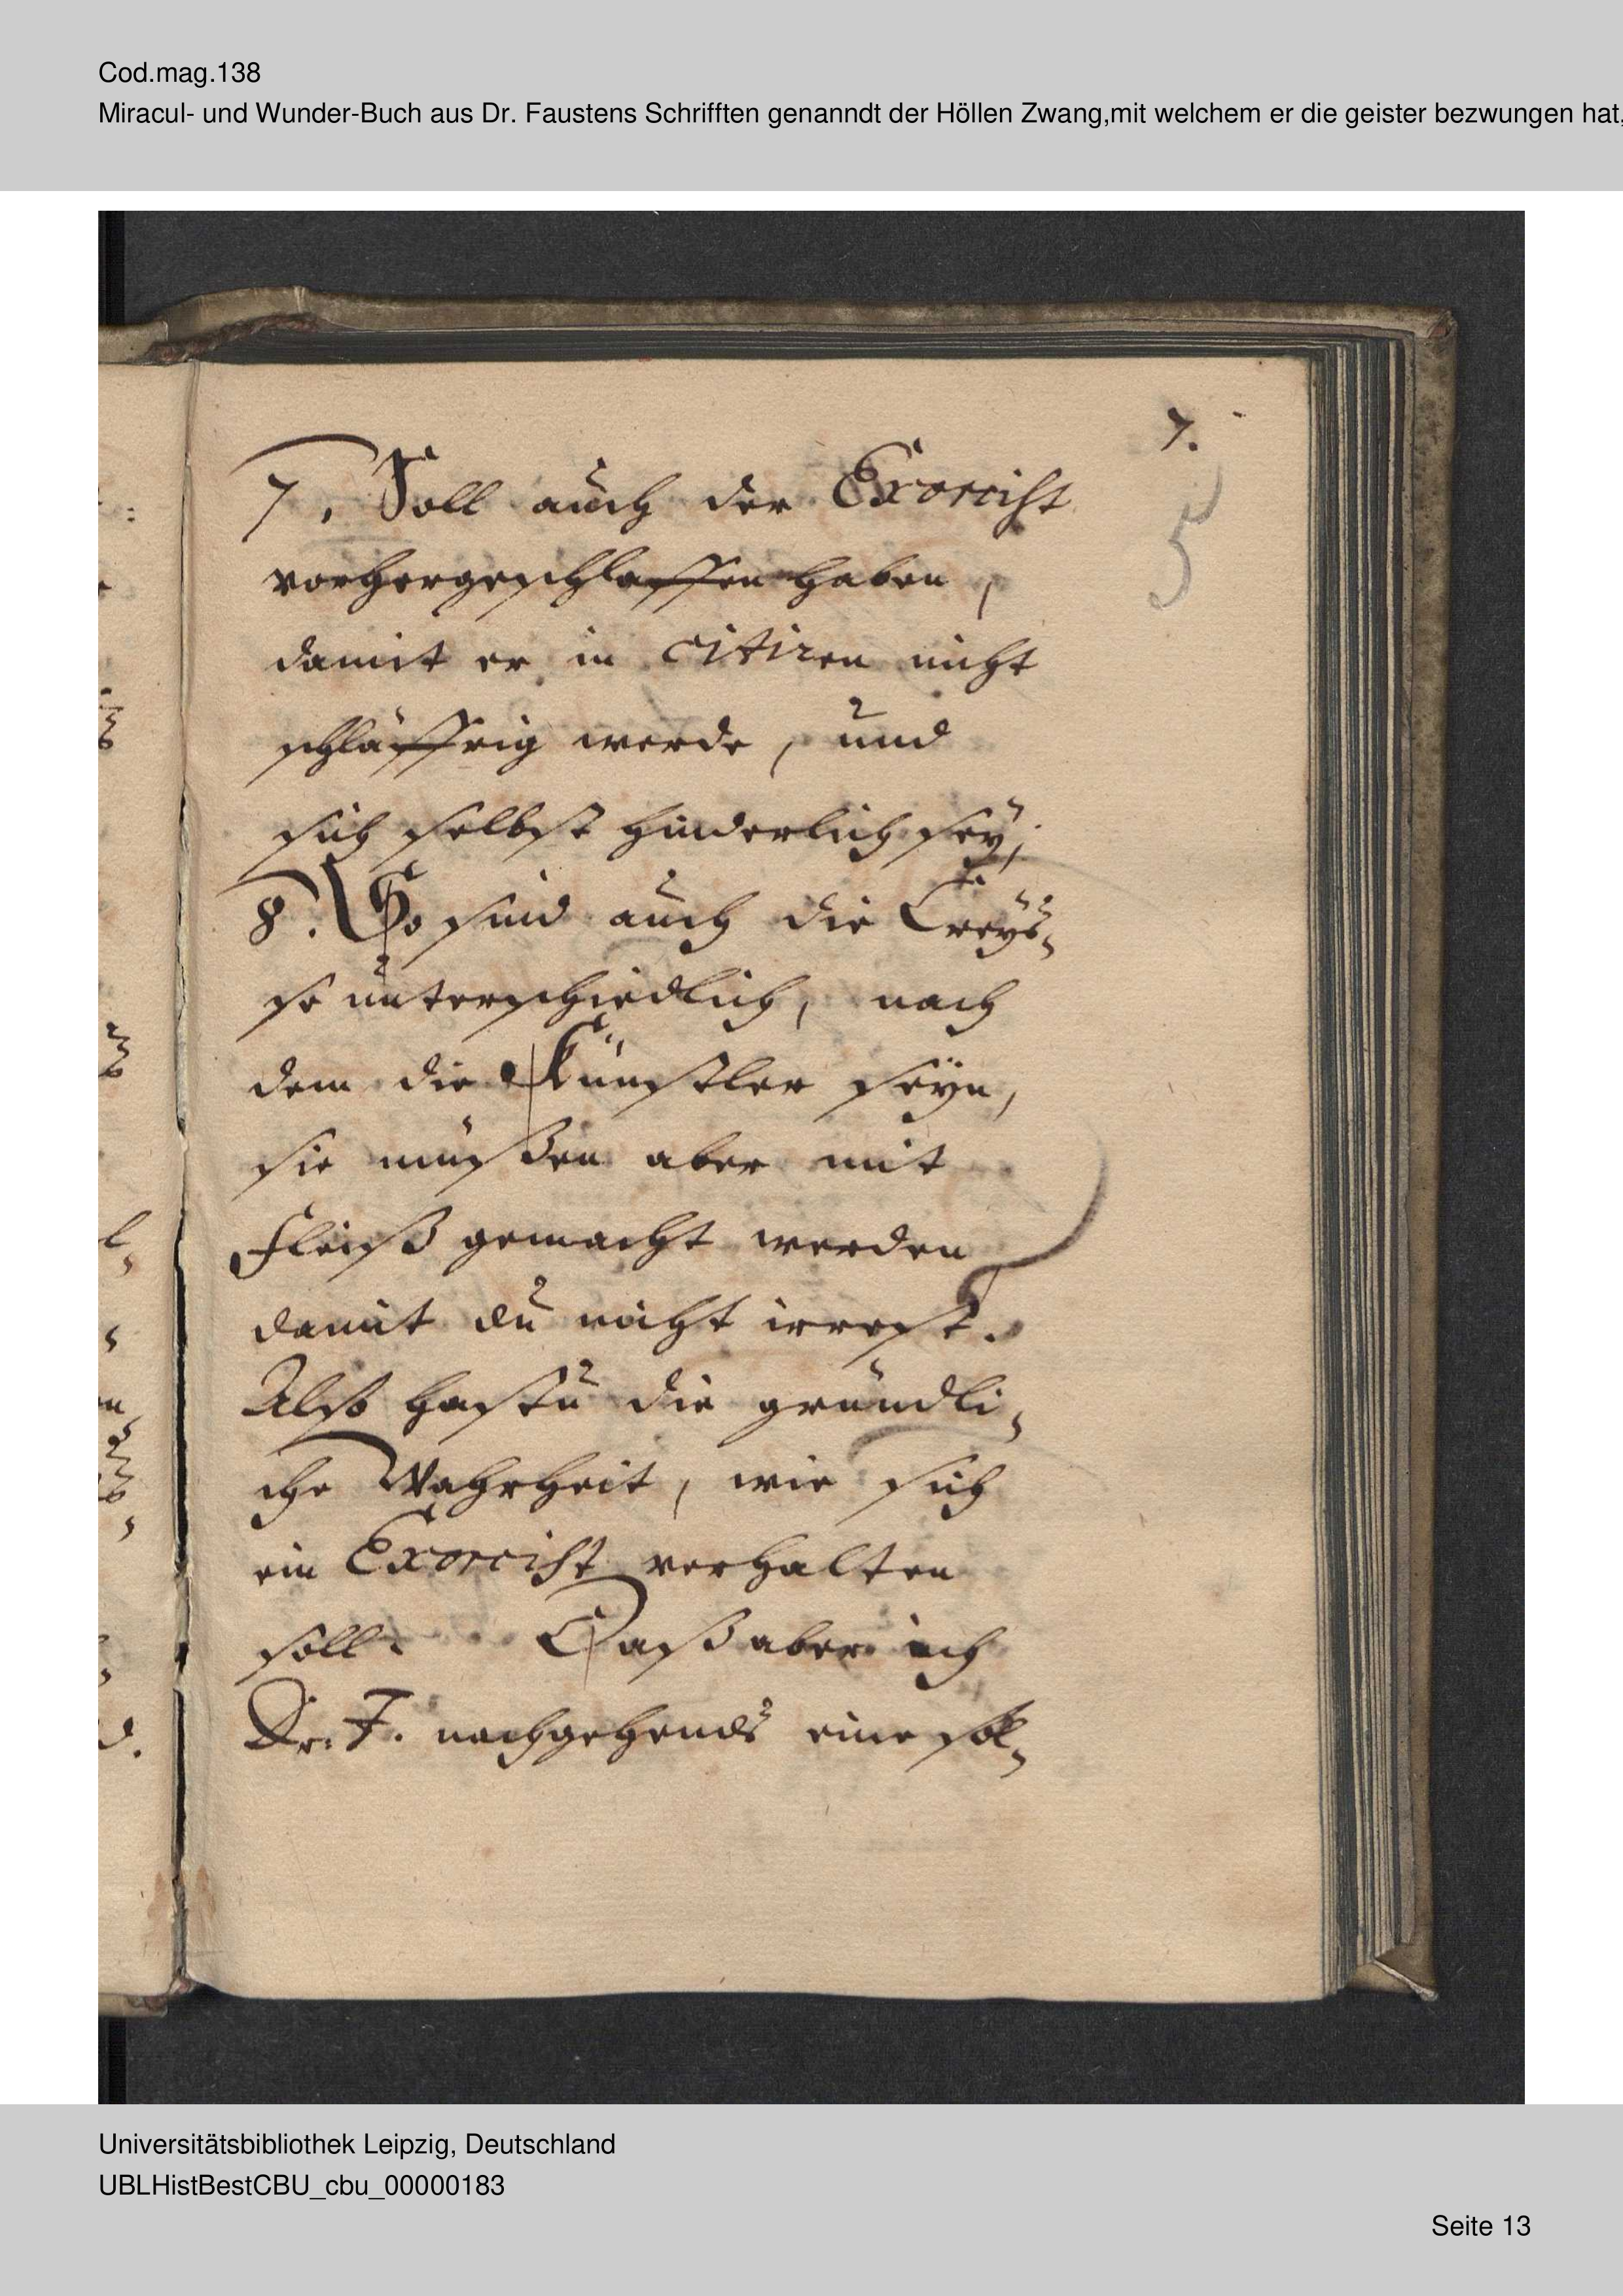 Cod.mag.138
Miracul- und Wunder-Buch aus Dr. Faustens Schrifften genanndt der Höllen Zwang,mit welchem er die geister bezwungen hat,
7.
5
7. Soll auch der Exorcist
vorhergeschlaffen haben,
damit er in citiren nicht
schläffrig werde, und
sich selbst hinderlich sey;
8. So sind auch die Creys-
se unterschiedlich, nach
dem die Künstler seyn,
sie müßen aber mit
Fleiß gemacht werden
damit du nicht irrest.
Also hastu die gründli-
che Wahrheit, wie sich
ein Exorcist verhalten
soll. Daß aber ich
Dr. F. nachgehends eine sol-
Universitätsbibliothek Leipzig, Deutschland
UBLHistBestCBU_cbu_00000183
Seite 13